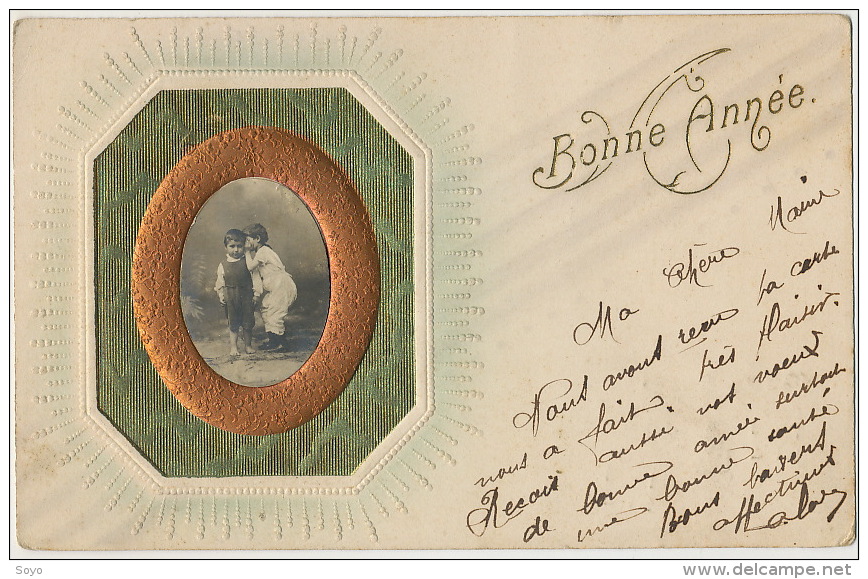 Bonne Année.
Ma chère
Nous avons recu ta carte
nous a fait très Plaisir.
Recois aussi nos voeux
de bonne année surtout
une bonne santé
Bons baisers
affectueux
Soyo
www.delcampe.net